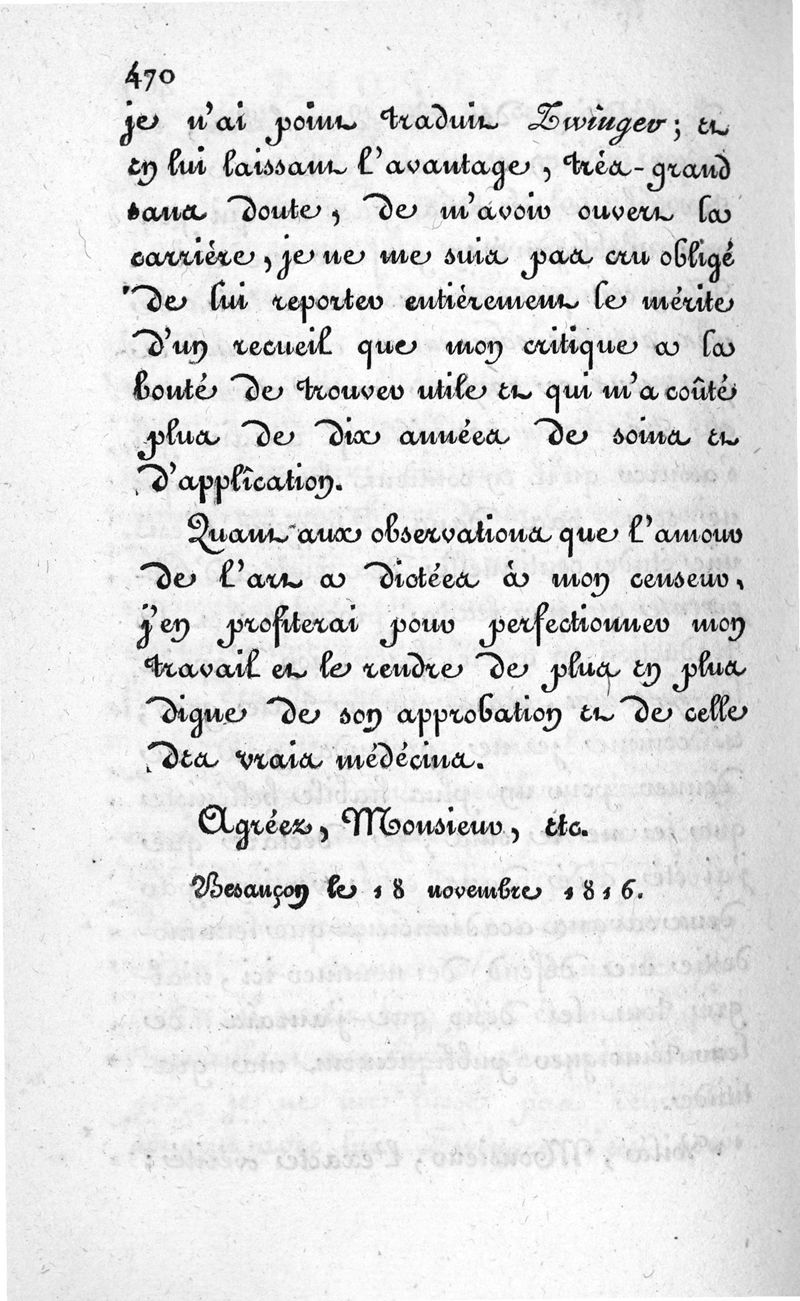 470
je n'ai point traduit Zwinger; et
en lui laissant l'avantage, très-grand
sans doute, de m'avoir ouvert la
carrière, je ne me suis pas cru obligé
de lui reporter entiérement le mérite
d'un recueil que mon critique a la
bonté de trouver utile et qui m'a coûté
plus de dix années de soins et
d'application.
Quant aux observations que l'amour
de l'art a dictées à mon censeur,
j'en profiterai pour perfectionner mon
travail et le rendre de plus en plus
digne de son approbation et de celle
des vrais médécins.
Agréez, Monsieur, etc.
Besançon le 18 novembre 1816.